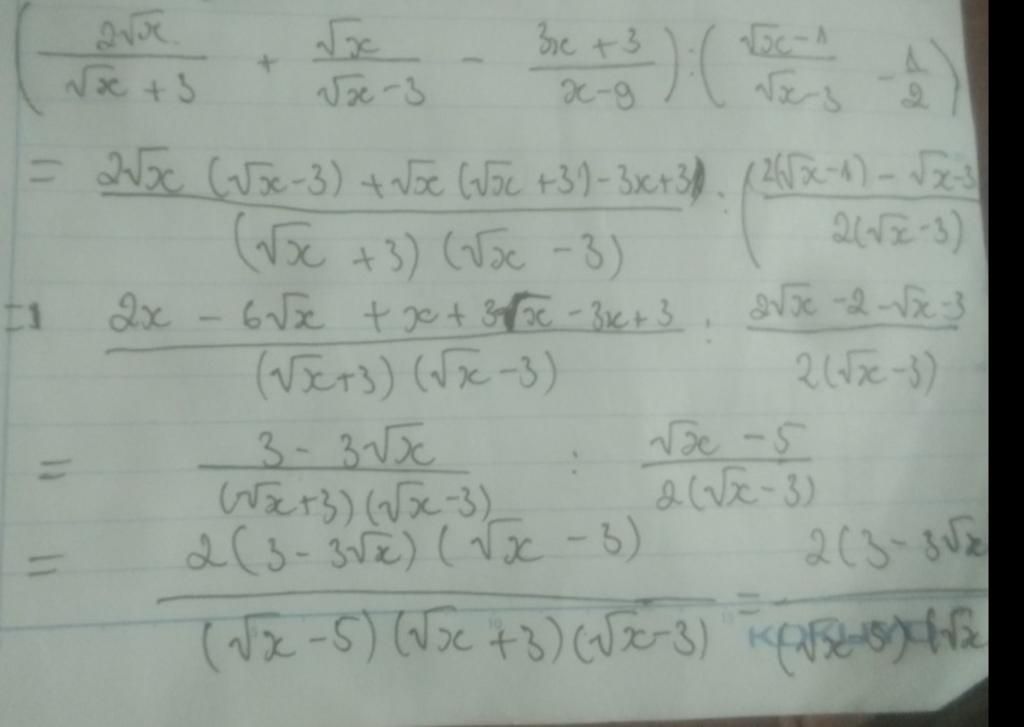 (2√x/(√x + 3) + √x/(√x - 3) - (3x + 3)/(x - 9)) : ((√x - 1)/(√x - 3) - 1/2)
= (2√x (√x - 3) + √x (√x + 3) - 3x + 3)/((√x + 3) (√x - 3)) : ((2(√x - 1) - √x - 3)/(2(√x - 3))
= (2x - 6√x + x + 3√x - 3x + 3)/((√x + 3) (√x - 3)) : (2√x - 2 - √x - 3)/(2(√x - 3))
= (3 - 3√x)/((√x + 3) (√x - 3)) : (√x - 5)/(2(√x - 3))
= (2(3 - 3√x) (√x - 3))/((√x - 5) (√x + 3) (√x - 3)) = (2(3 - 3√x)/((√x - 5) (√x